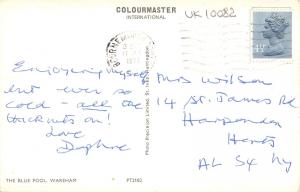 COLOURMASTER
INTERNATIONAL
UK10082
Enjoying myself
but ever so
cold - all the
thickknits on!
Love
Daphne
Mrs Wilson
14 St. James Rd
Harpenden
Herts
AL
THE BLUE POOL, WAREHAM
PT2162
Photo Precision Limited, St. Ives, Huntingdon